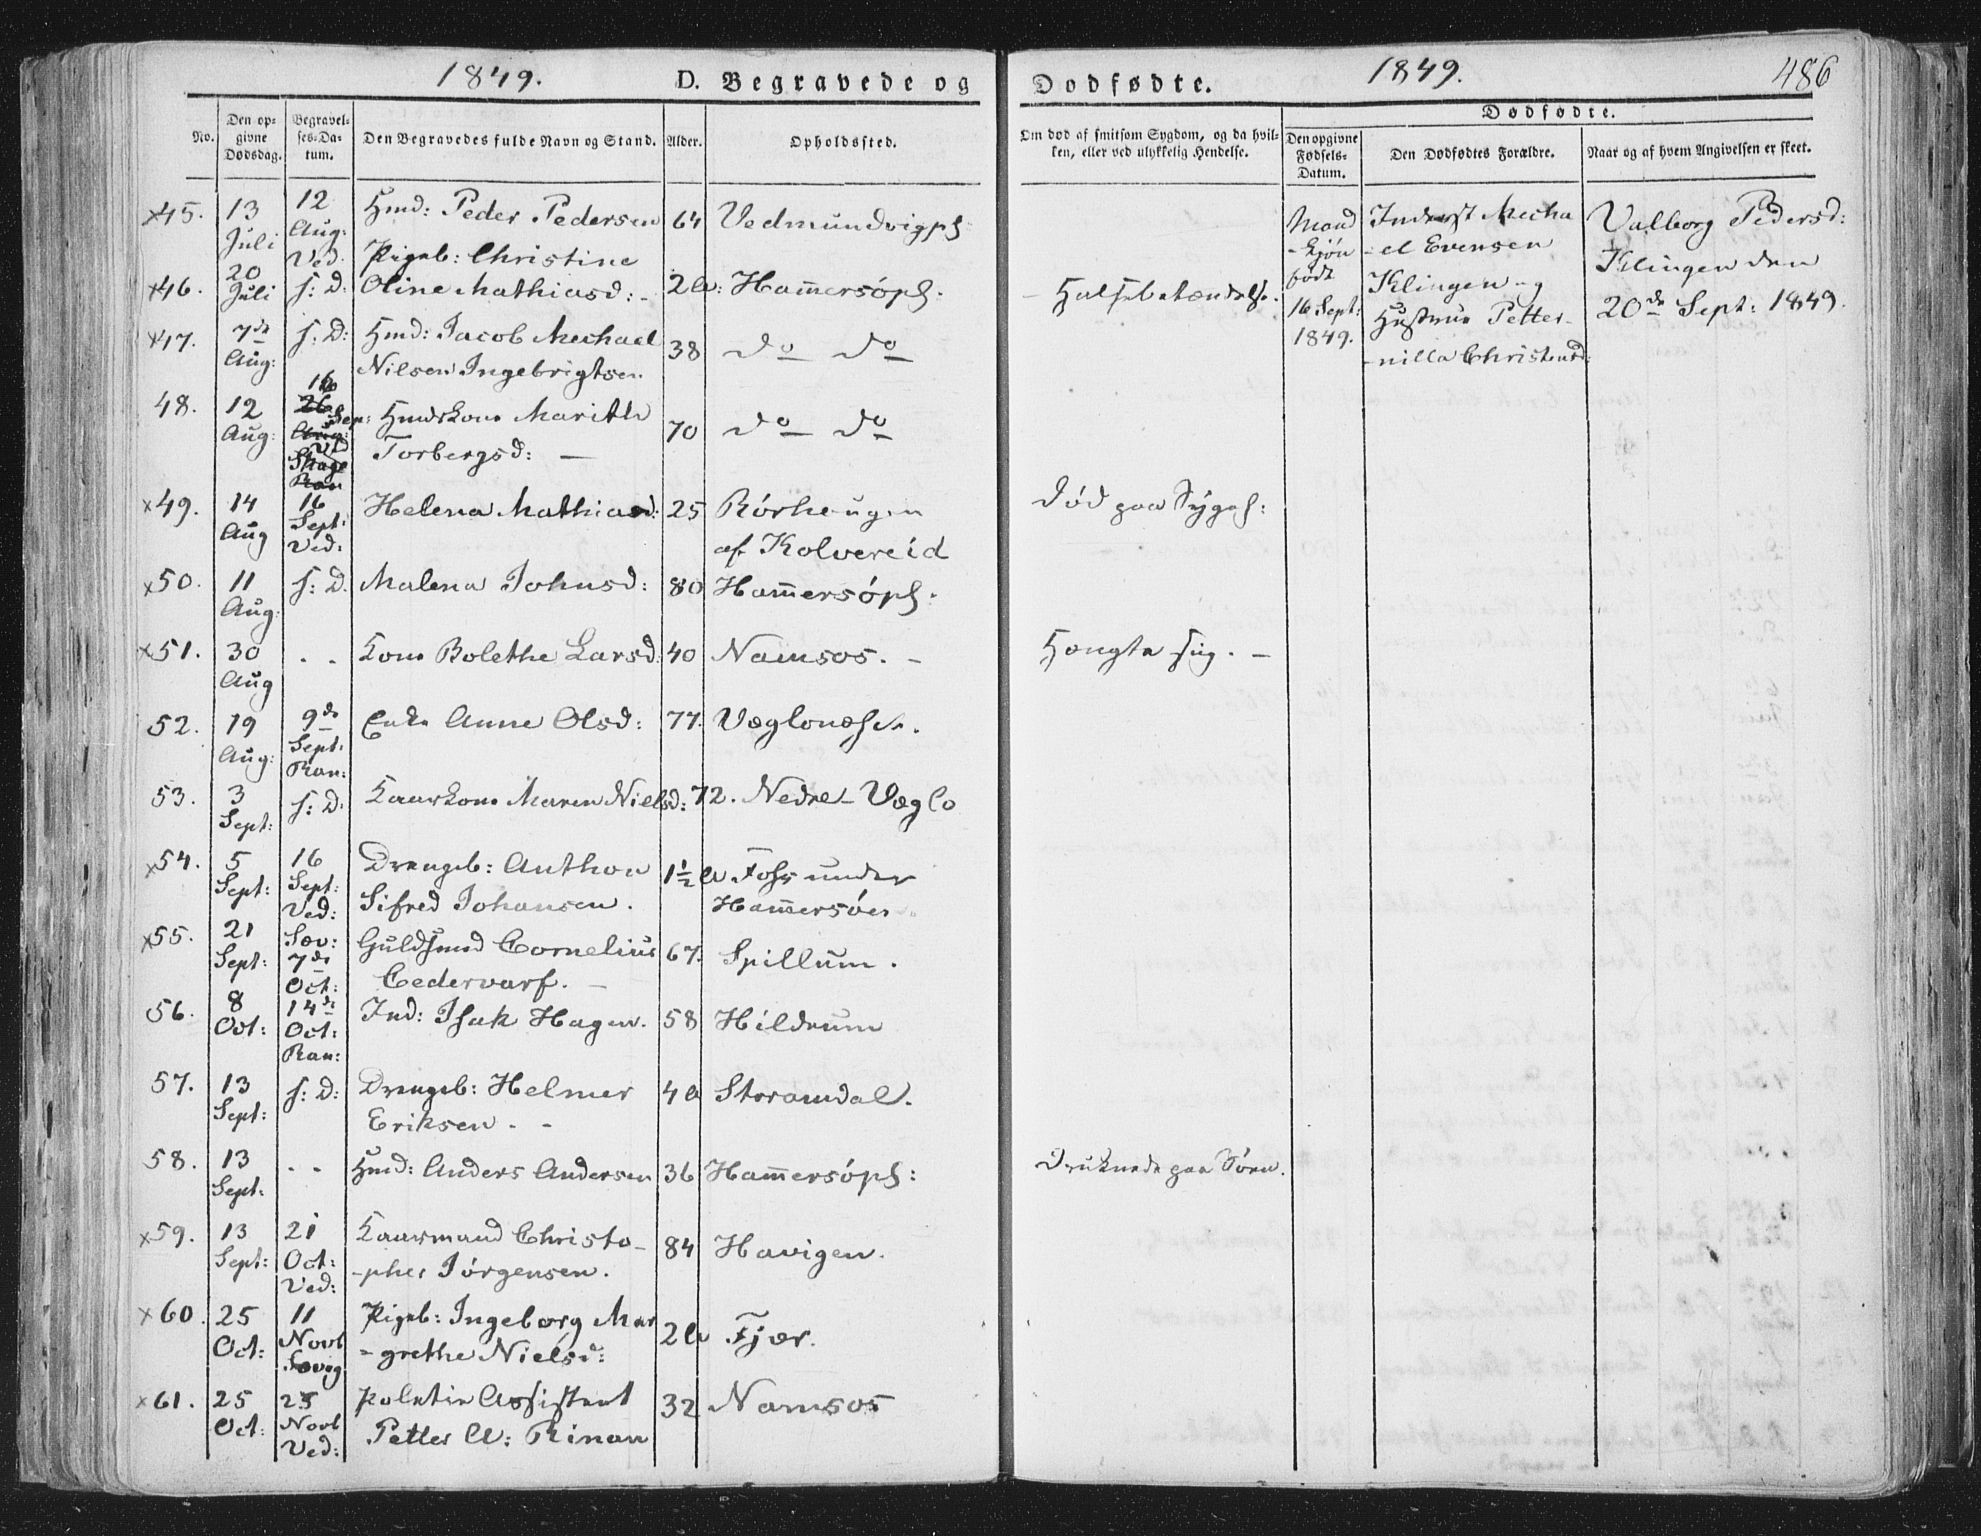 1849.
D. Begravede og
Dodfødte.
1849.
486
No.
Den op-
givne
Dødsdag.
Begravel-
ses-Da-
tum.
Den Begravedes fulde Navn og Stand.
Alder.
Opholdssted.
Om død af smitsom Sygdom, og da hvil-
ken, eller ved ulykkelig Hendelse.
Dødfødte.
Den opgivne
Fødsels-
Datum.
Den Dødfødtes Forældre.
Naar og af hvem Angivelsen er skeet.
x45. 13 Juli 12 Aug: Ved. Hmd: Peder Pedersen 64 Vedmundvigpl
x46. 20 Juli s: D: Pigeb: Christine
Oline Mathiasd: - 2 a: Hammersøpl. - Halsbetændelse.
x47. 7de Aug: s: D: Hmd: Jacob Mechael
Nilsen Ingebrigtsen 38 do do
48. 12 Aug: 16 Sep: Hmdskone Marith
Torbergsd: — 70 do do
x49. 14 Aug 16 Sept: Ved: Helena Mathiasd: 25 Rørhaugen
af Kolvereid
Død paa Sygeh:
x50. 11 Aug: s: D. Malena Johnsd: 80 Hammersøpl.
x51. 30 Aug . . Kone Bolethe Larsd 40 Namsos. - Hængte sig. -
52. 19 Aug: 9de Sept: Ran: Enke Anne Olsd: 77.
53. 3 Sept: s: D: Kaarkone Maren Nielsd: 72. Nedre Væglo
x54. 5 Sept: 16 Sept: Ved: Drengeb: Anthon
Sifred Johansen. 1½ a Foss under
Hammersøen
x55. 21 Sept: Sæv: 7de Oct: Guldsmed Cornelius
Cedervarf. - 67. Spillum.
56. 8 Oct: 14de Oct: Ran: Ind: Isak Hagen. 58 Hildrum
57. 13 Sept: s: D: Drengeb: Helmer
Eriksen. - 4 a Storamdal.
58. 13 Sept: . . Hmd: Anders Andersen 36 Hammersøpl: Druknede paa Søen.
x59. 13 Sept: 21 Oct: Ved: Kaarmand Christo-
-pher Jørgensen. 84 Havigen.
x60. 25 Oct: 11 Novb Pigeb: Ingeborg Mar
-grethe Nielsd: 2 a Fjær.
x61. 25 Oct: 25 Novb Ved: Politie Assistent
Petter A: Rinan 32 Namsos
Mand
-kjøn
født
16 Sept:
1849.
Inderst Mecha
-el Evensen
Klingen og
Hustrue Petter-
-nilla Christensd:
Valborg Pedersd:
Klingen den
20de Sept: 1849.